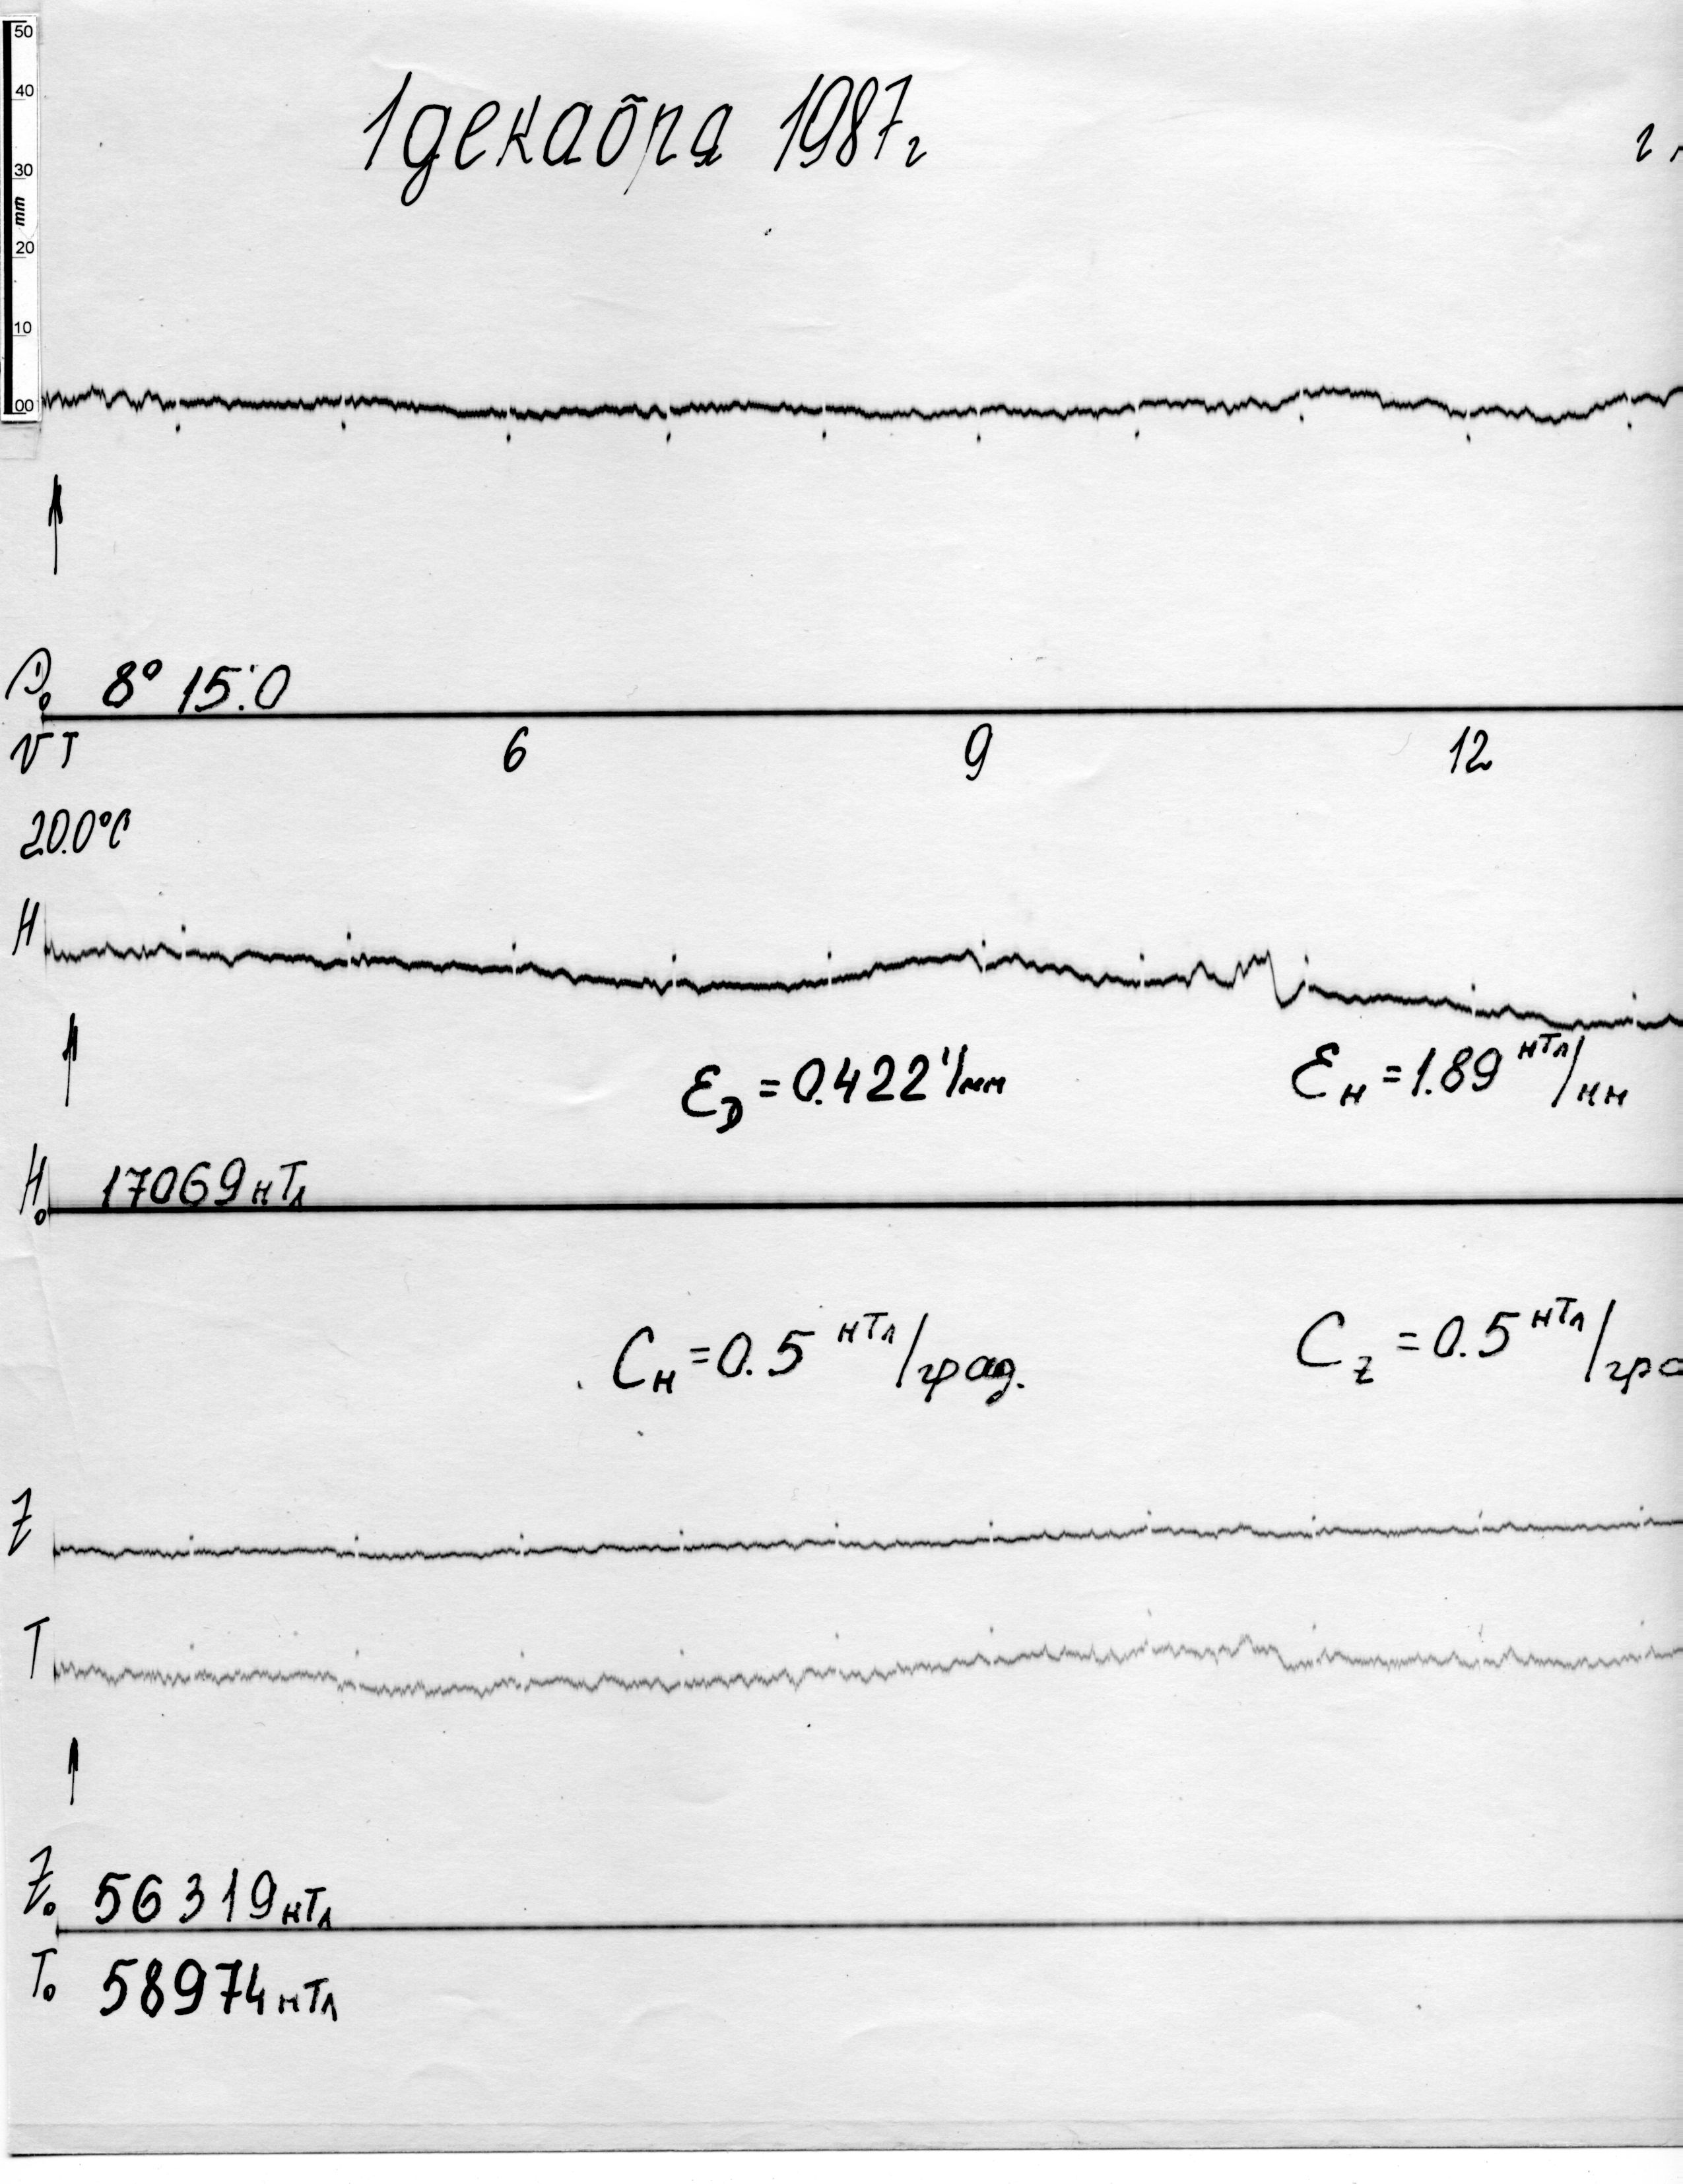 50
40
30
mm
20
10
00
1 декабря 1987 г
D₀ 8° 15.'0
UT 6 9 12
20.0°C
H
ε_D = 0.422 '/мм ε_H = 1.89 нТл/мм
H₀ 17069 нТл
C_H = 0.5 нТл/град. C_Z = 0.5 нТл/гра
Z
T
Z₀ 56319 нТл
T₀ 58974 нТл